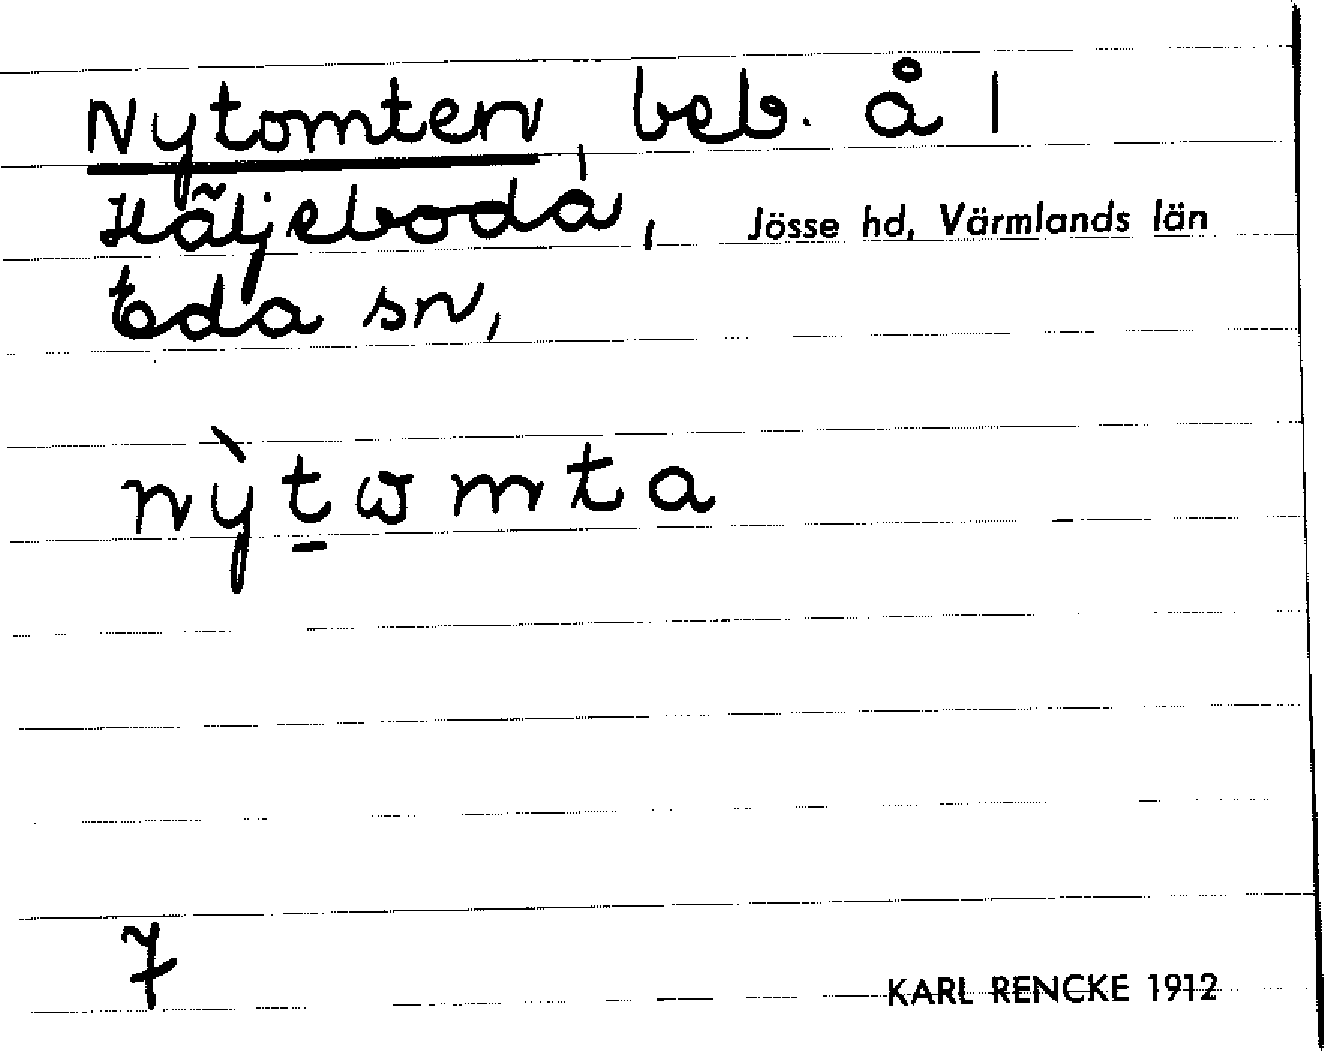 Nytomten, beb. å 1
Häljeboda, Jösse hd, Värmlands län
Eda sn,
nỳtωmta
7
KARL RENCKE 1912